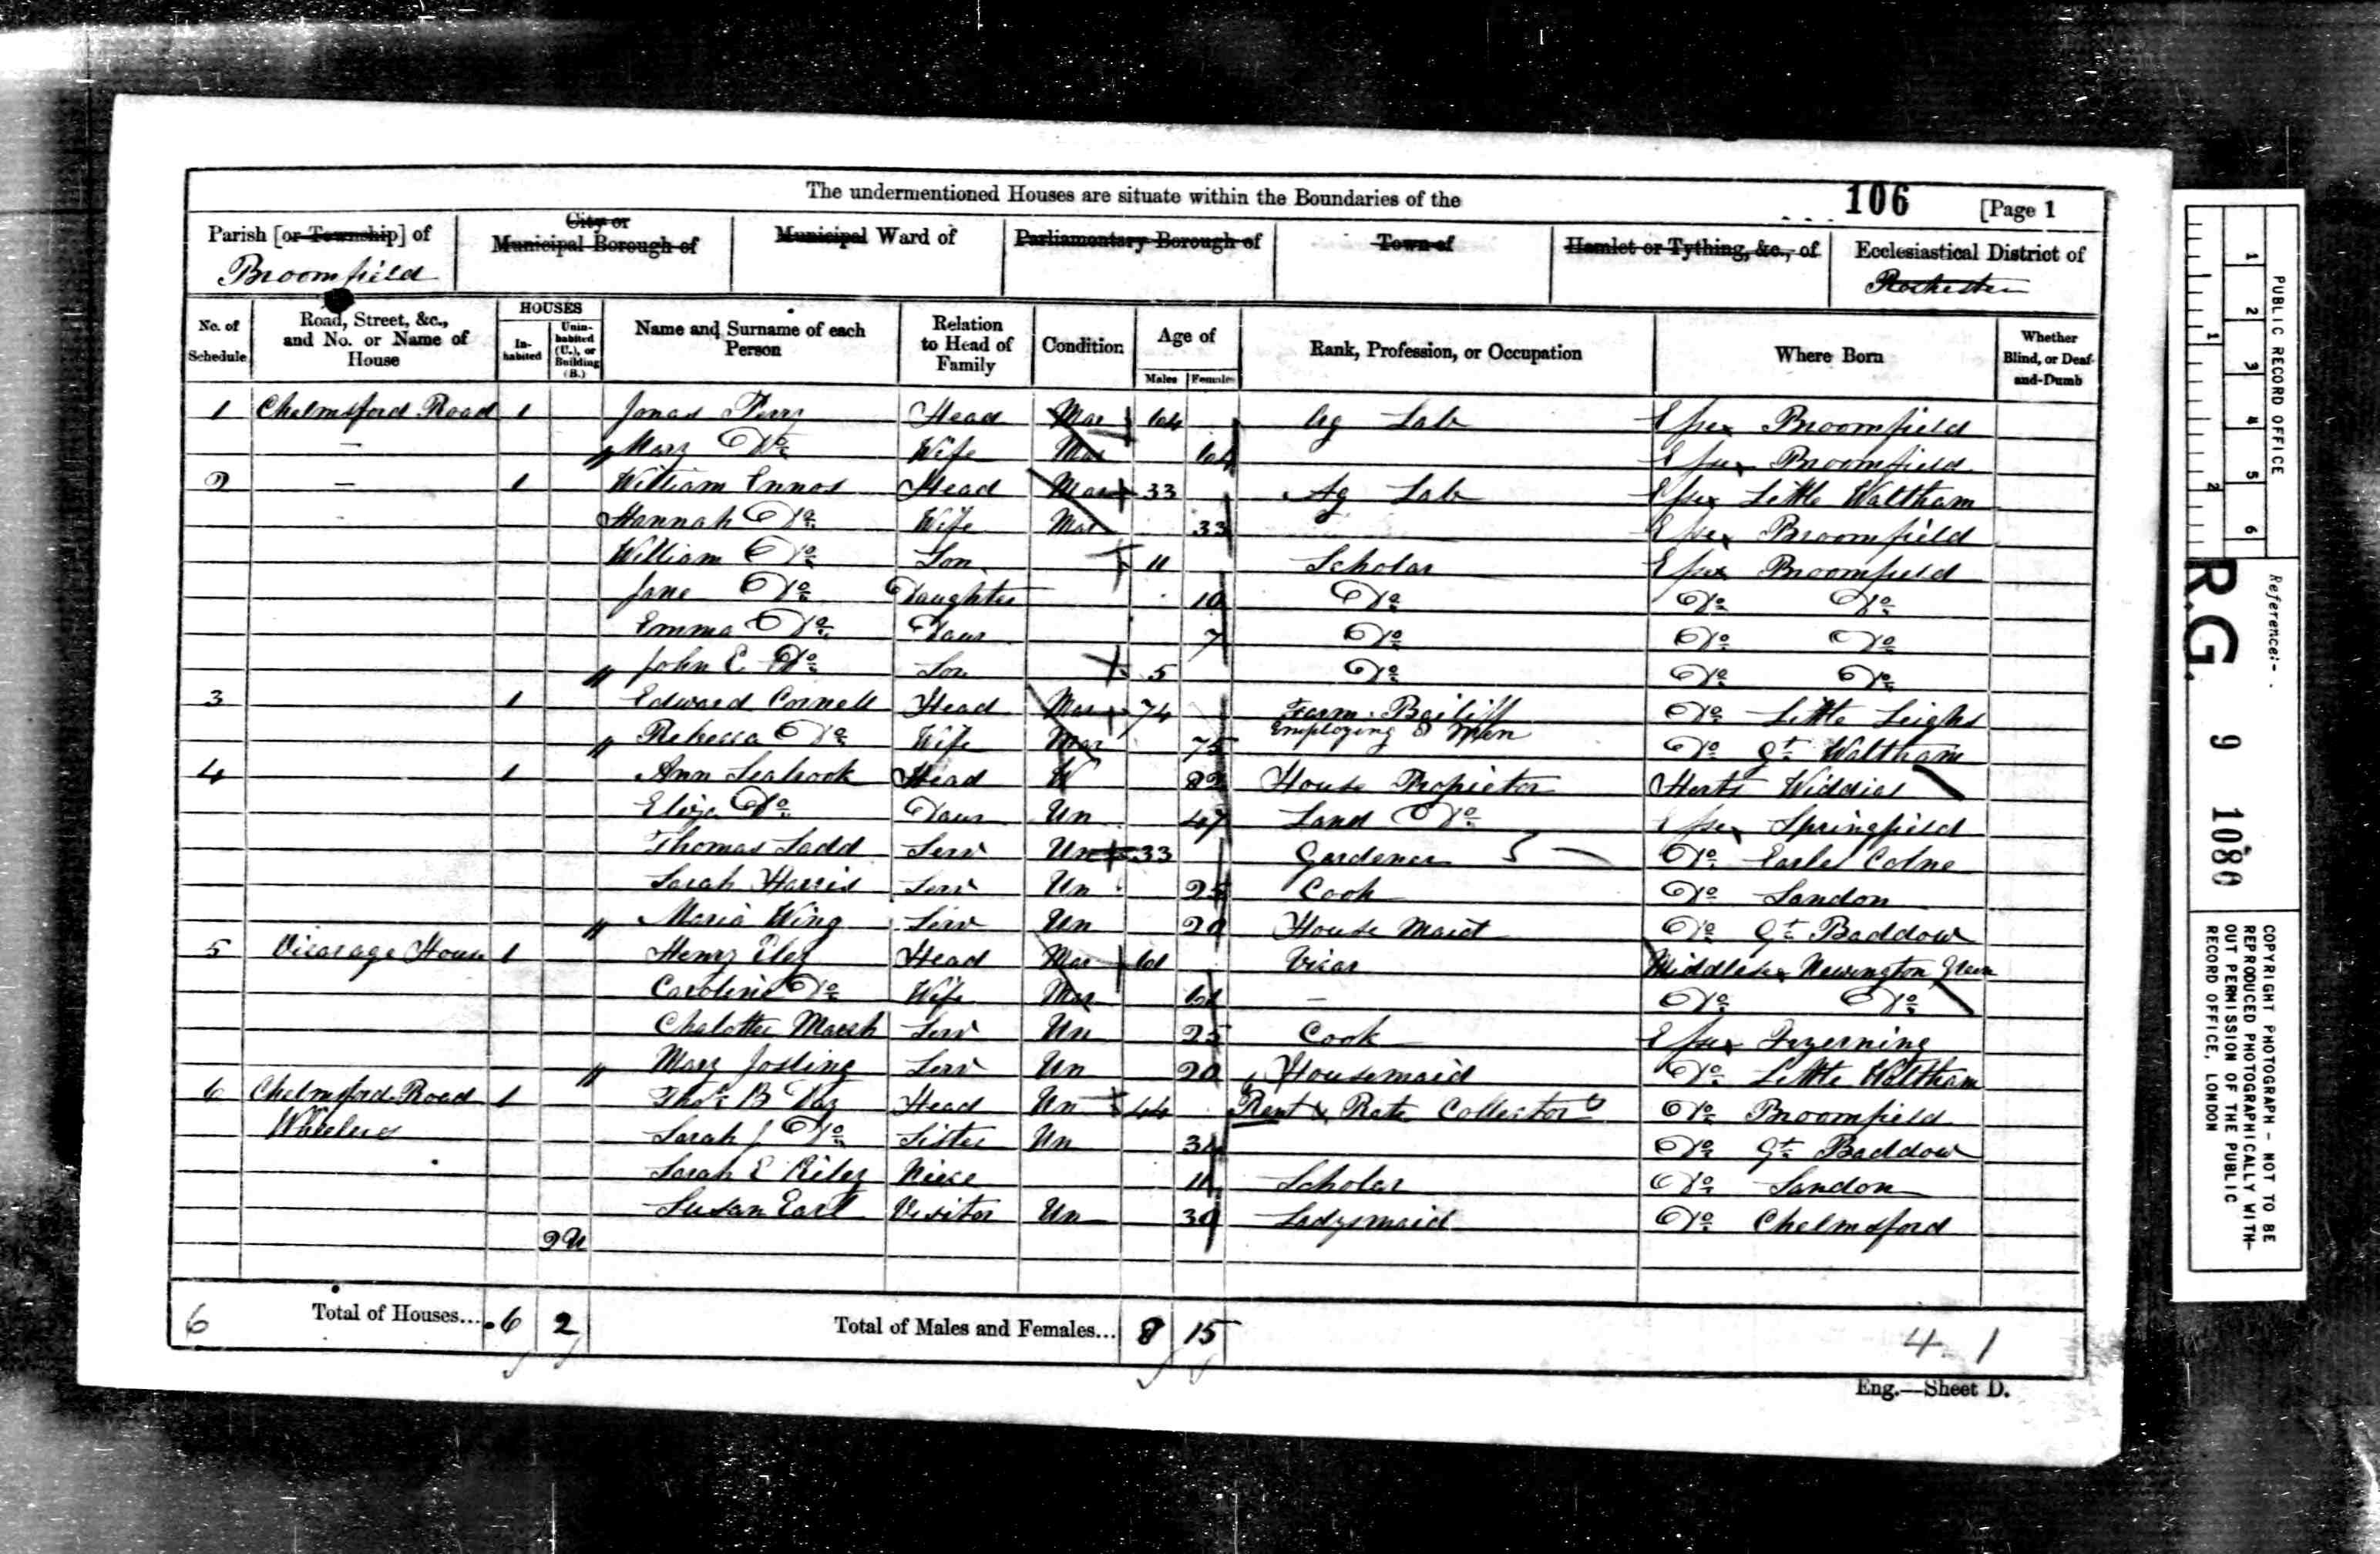 The undermentioned Houses are situate within the Boundaries of the 106 [Page 1
Parish [or Township] of City or Municipal Borough of Municipal Ward of Parliamentary Borough of Town of Hamlet or Tything, &c., of Ecclesiastical District of
Broomfield Rochester
No. of Schedule Road, Street, &c., and No. or Name of House HOUSES In-habited Unin-habited (U.), or Building (B.) Name and Surname of each Person Relation to Head of Family Condition Age of Males Females Rank, Profession, or Occupation Where Born Whether Blind, or Deaf-and-Dumb
1 Chelmsford Road 1 Jonas Head Mar 64 Ag Lab Essex Broomfield
— " Mary Do Wife Mar 64 Essex Broomfield
2 — 1 William Ennos Head Mar 33 Ag Lab Essex Little Waltham
Hannah Do Wife Mar 33 Essex Broomfield
William Do Son 11 Scholar Essex Broomfield
Jane Do Daughter 10 Do Do Do
Emma Do Daur 7 Do Do Do
" John E Do Son 5 Do Do Do
3 1 Edward Cornell Head Mar 74 Farm Bailiff Do Little Leighs
" Rebecca Do Wife Mar 75 Employing 8 Men Do Gt Waltham
4 1 Ann Seabrook Head W 82 House Propietor Herts Widdial
Eliza Do Daur Un 47 Land Do Essex Springfield
Thomas Ladd Serv Un 33 Gardener Do Earles Colne
Sarah Harris Serv Un 25 Cook Do Sandon
" Maria Wing Serv Un 20 House Maid Do Gt Baddow
5 Vicarage House 1 Henry Eley Head Mar 61 Vicar Middlesex Newington Green
Caroline Do Wife Mar — Do Do
Chalottee Marsh Serv Un 25 Cook Essex
" Mary Josling Serv Un 20 Housemaid Do Little Waltham
6 Chelmsford Road 1 Thos B Head Un 44 Rent & Rate Collector Do Broomfield
Sarah J Do Sister Un 34 Do Gt Baddow
Sarah E Riley Niece 11 Scholar Do Sandon
Susan Earl Visitor Un 30 Ladysmaid Do Chelmsford
2 U
6 Total of Houses... 6 2 Total of Males and Females... 8 15 4 1
Eng.—Sheet D.
PUBLIC RECORD OFFICE
1 2 3 4 5 6
1 2
Reference:-
R.G. 9 1080
COPYRIGHT PHOTOGRAPH - NOT TO BE
REPRODUCED PHOTOGRAPHICALLY WITH-
OUT PERMISSION OF THE PUBLIC
RECORD OFFICE, LONDON